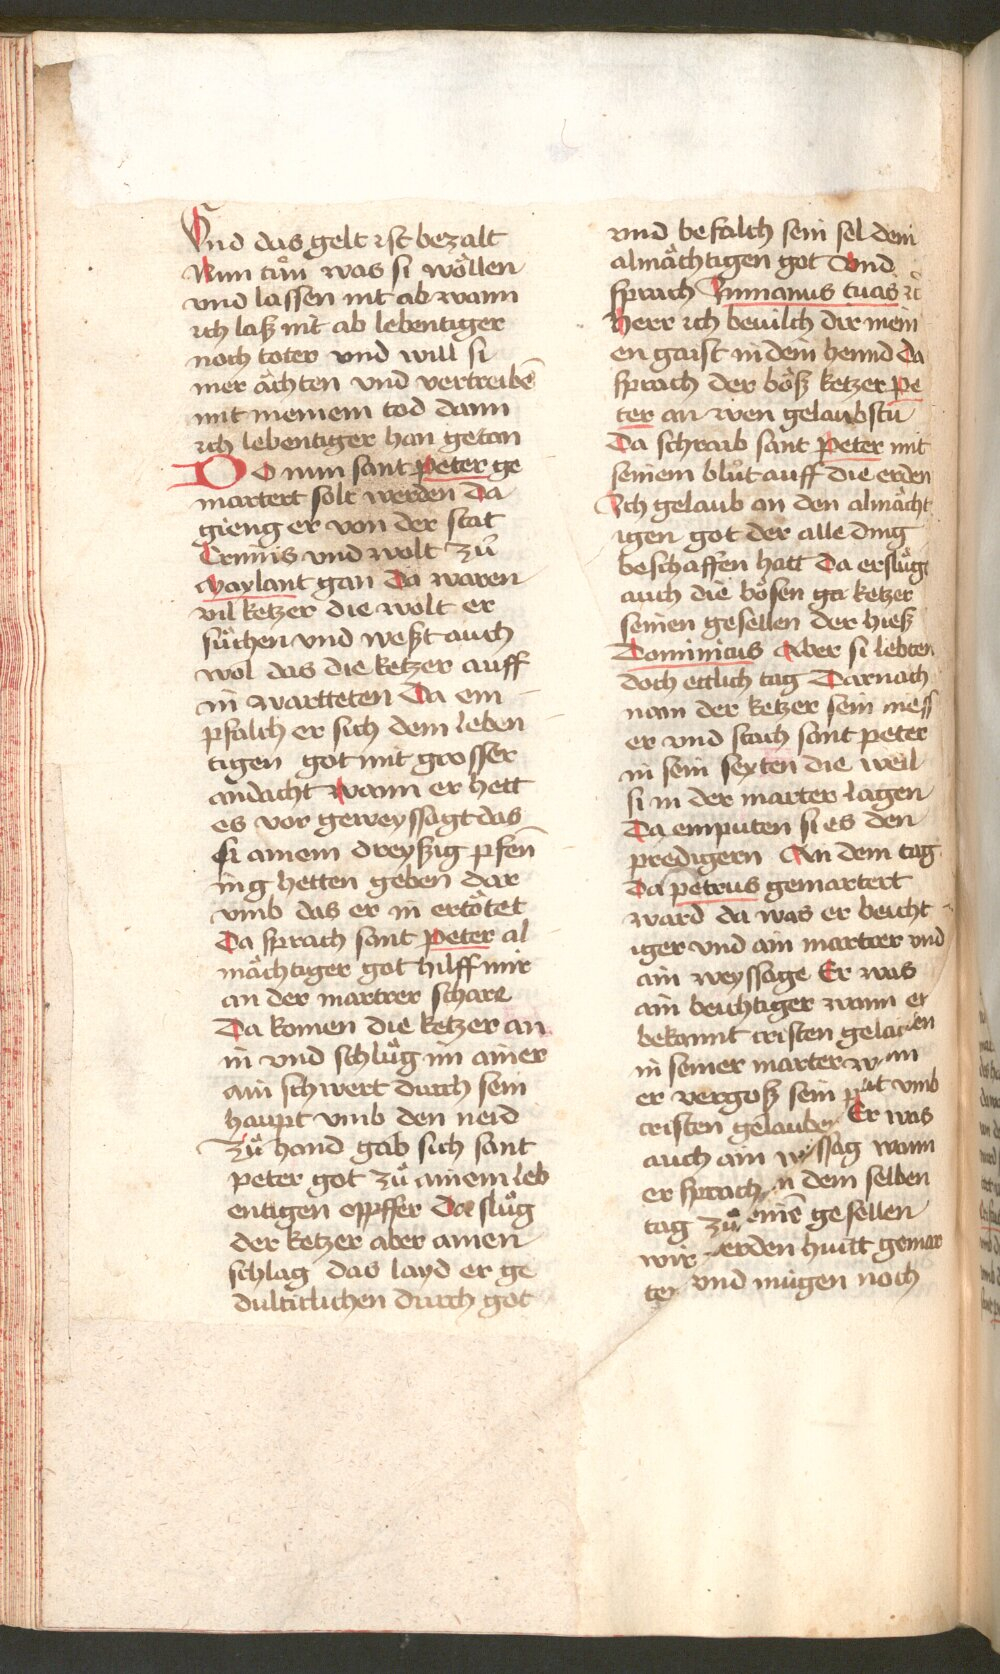 Vnd das gelt ist bezalt
Nun tuͦn was si woͤllen
vnd lassen nit ab wann
ich laß nit ab lebentiger
noch toter vnd will si
mer aͤchten vnd vertreibē
mit meinem tod dann
ich lebentiger han getan
DO nun sant Peter ge
martert solt werden Da
gieng er von der stat
Crimis vnd wolt zuͦ
Maylant gan Da waren
vil ketzer die wolt er
suͦchen vnd weßt auch
wol das die ketzer auff
in wartteten Da em
pfalch er sich dem leben
tigen got mit grosser
andacht wann er hett
es vor geweyssagt das
si ainem dreyßig pfen̄
ing hetten geben dar
vmb das er in ertoͤtet
Da sprach sant Peter al
maͤchtiger got hilff mir
an der martrer schare
Da komen die ketzer an
in vnd schluͦg im ainer
ain schwert durch sein
haupt vmb den neid
Zuͦ hand gab sich sant
peter got zuͦ ainem leb
entigen oppffer Da sluͦg
der ketzer aber ainen
schlag das layd er ge
dultitlichen durch got
vnd befalch sein sel dem
almaͤchtigen got Vnd
sprach Inmanus tuas ꝛc̄
Herr ich beuilch dir mein
en gaist in dein hennd Da
sprach der boͤß ketzer Pe
ter an wen gelaubstu
Da schraib sant Peter mit
seinem bluͦt auff die erden
Ich gelaub an den almaͤcht
igen got der alle ding
beschaffen hatt Da ersluͦge
auch die boͤsen ga ketzer
seinen gesellen der hieß
Dominicus Aber si lebten
doch ettlich tag Darnach
nam der ketzer sein mess
er vnd stach sant peter
in sein seyten die weil
si in der marter lagen
Da emputen si es den
predigern An dem tag
Da petrus gemartert
ward da was er beicht
iger vnd ain martrer vnd
ain weyssage Er was
ain beichtiger wann er
bekannt cristen gelauben
in seiner marter
er vergoß sein vmb
cristen gelauben Er was
auch ain wann
er sprach dem selben
tag zuͦ gesellen
wir huitt gemar
vnd mügen noch